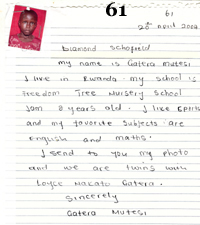 61
61
20th April 2007
Diamond Schofield
my name is Gatera Mutesi
I live in Rwanda. my school is
Freedom Tree Nursery School
Iam 8 years old. I like sports
and my favorite subjects are
English and maths.
I send to you my photo
and we are twins with
Loyce Makato Gatera.
Sincerely
Gatera Mutesi